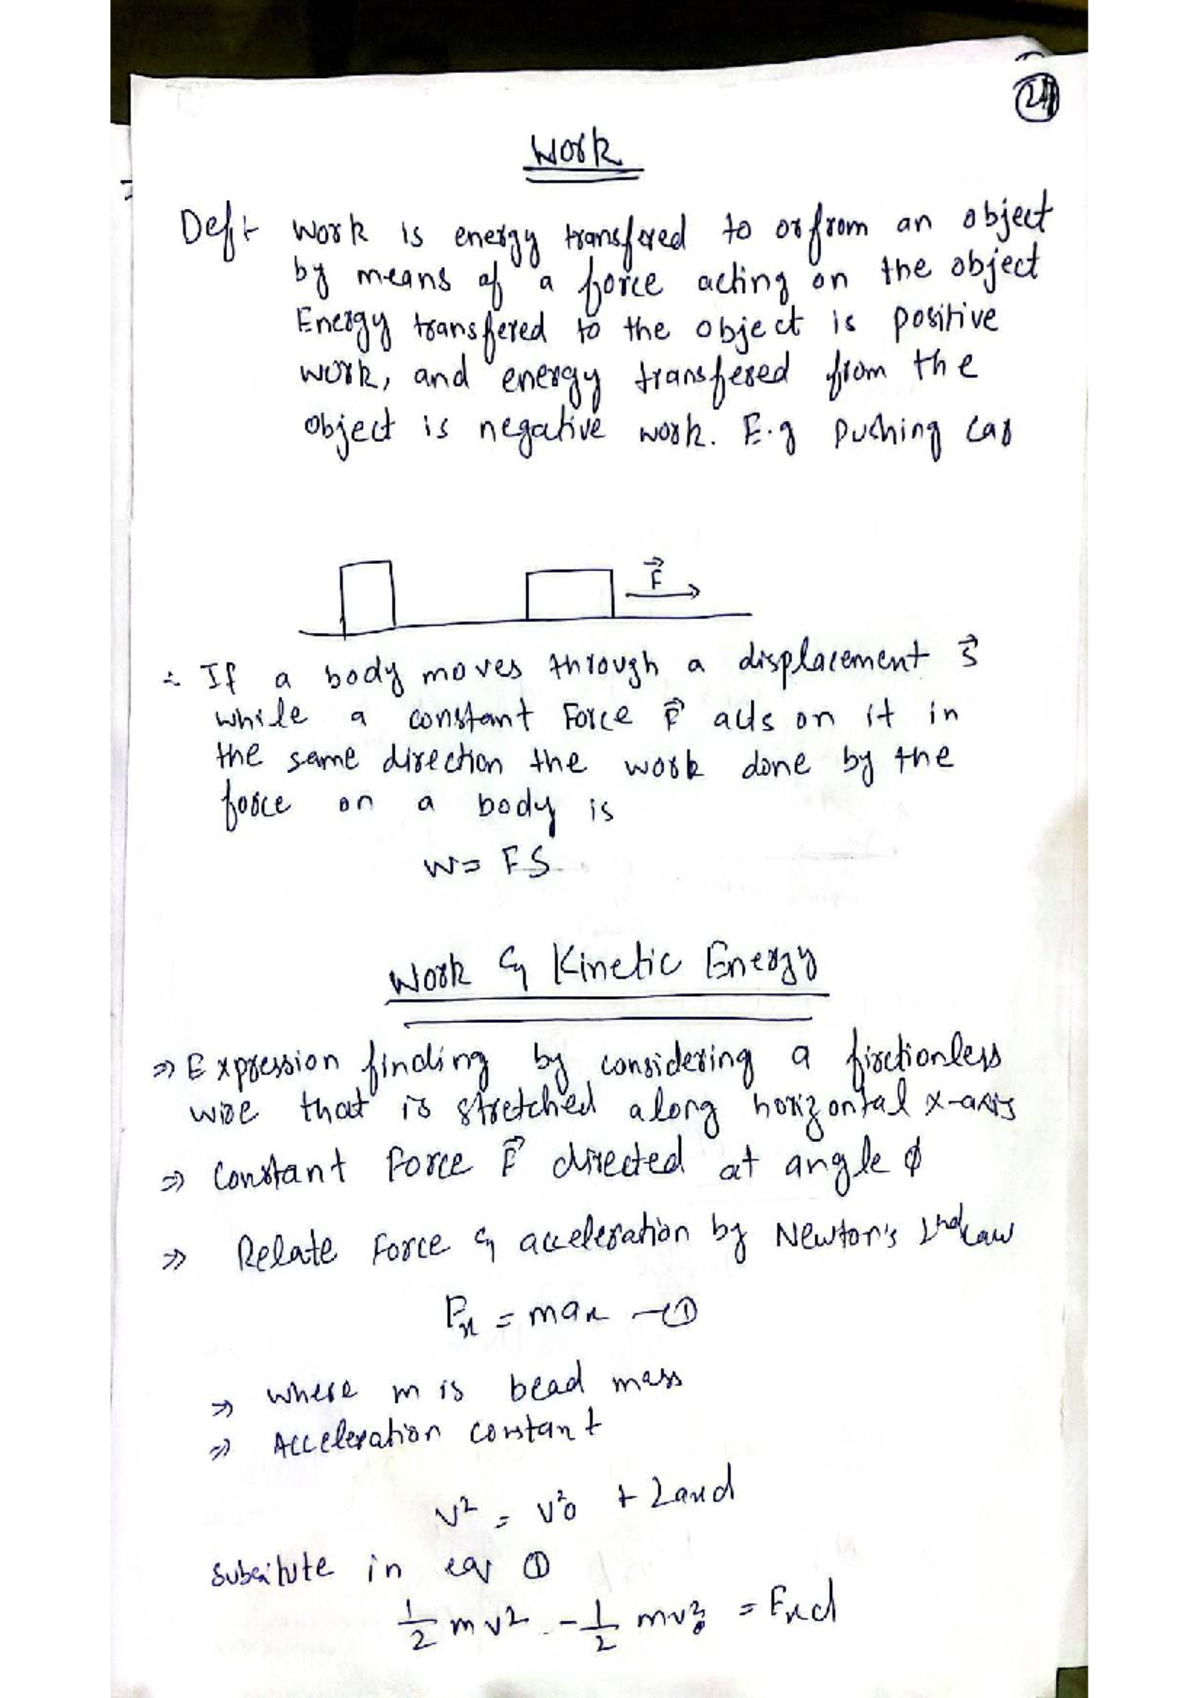 24
Work
Def:- Work is energy transfered to or from an object
by means of a force acting on the object
Energy transfered to the object is positive
work, and energy transfered from the
object is negative work. E.g Pushing Car
F⃗
∴ If a body moves through a displacement S⃗
while a constant Force F⃗ acts on it in
the same direction the work done by the
force on a body is
W = FS
Work & Kinetic Energy
⇒ Expression finding by considering a firctionless
wire that is stretched along horizontal x-axis
⇒ Constant Force F⃗ directed at angle φ
⇒ Relate Force & acceleration by Newton's 2nd Law
Fx = max —①
⇒ where m is bead mass
⇒ Acceleration constant
v² = v²0 + 2axd
Subsitute in eq ①
1/2 mv² - 1/2 mv²0 = Fxd